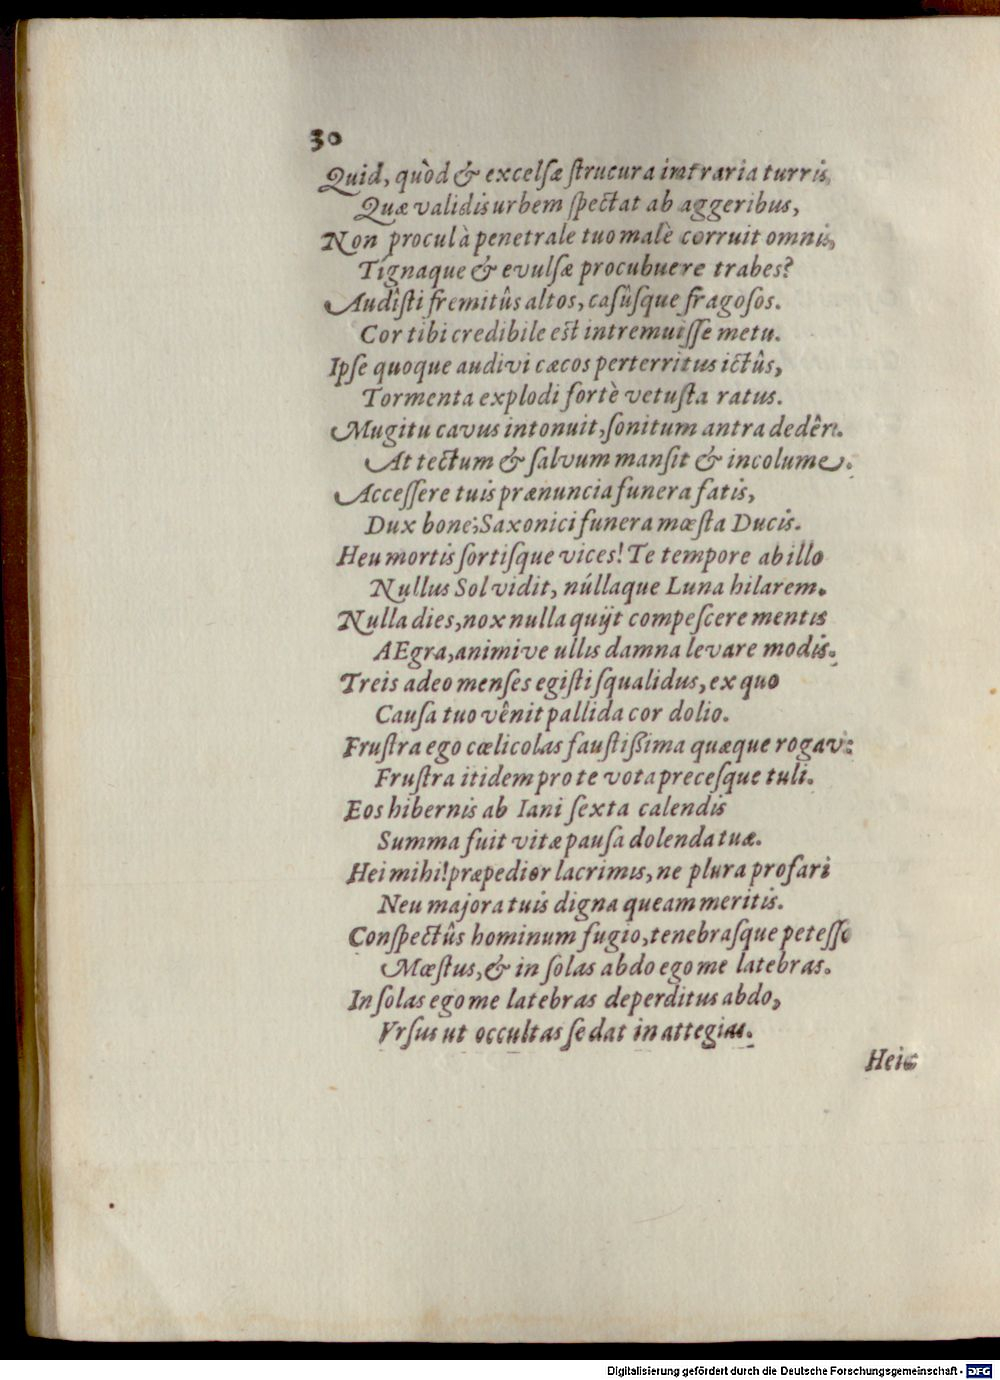 30
Quid, quòd & excelsæ strucura intraria turris,
Quæ validis urbem spectat ab aggeribus,
Non procul à penetrale tuo malè corruit omnis,
Tignaque & evulsæ procubuere trabes?
Audîsti fremitûs altos, casûsque fragosos.
Cor tibi credibile est intremuisse metu.
Ipse quoque audivi cæcos perterritus ictûs,
Tormenta explodi fortè vetusta ratus.
Mugitu cavus intonuit, sonitum antra dedêre.
At tectum & salvum mansit & incolume.
Accessere tuis prænuncia funera fatis,
Dux bone; Saxonici funera mœsta Ducis.
Heu mortis sortisque vices! Te tempore ab illo
Nullus Sol vidit, núllaque Luna hilarem.
Nulla dies, nox nulla quijt compescere mentis
AEgra, animive ullis damna levare modis.
Treis adeo menses egisti squalidus, ex quo
Causa tuo vênit pallida cor dolio.
Frustra ego cœlicolas faustißima quæque rogavi:
Frustra itidem pro te vota precesque tuli.
Eos hibernis ab Iani sexta calendis
Summa fuit vitæ pausa dolenda tuæ.
Hei mihi! præpedior lacrimis, ne plura profari
Neu majora tuis digna queam meritis.
Conspectûs hominum fugio, tenebrasque petesso
Mœstus, & in solas abdo ego me latebras.
In solas ego me latebras deperditus abdo,
Vrsus ut occultas se dat in attegias.
Digitalisierung gefördert durch die Deutsche Forschungsgemeinschaft - DFG